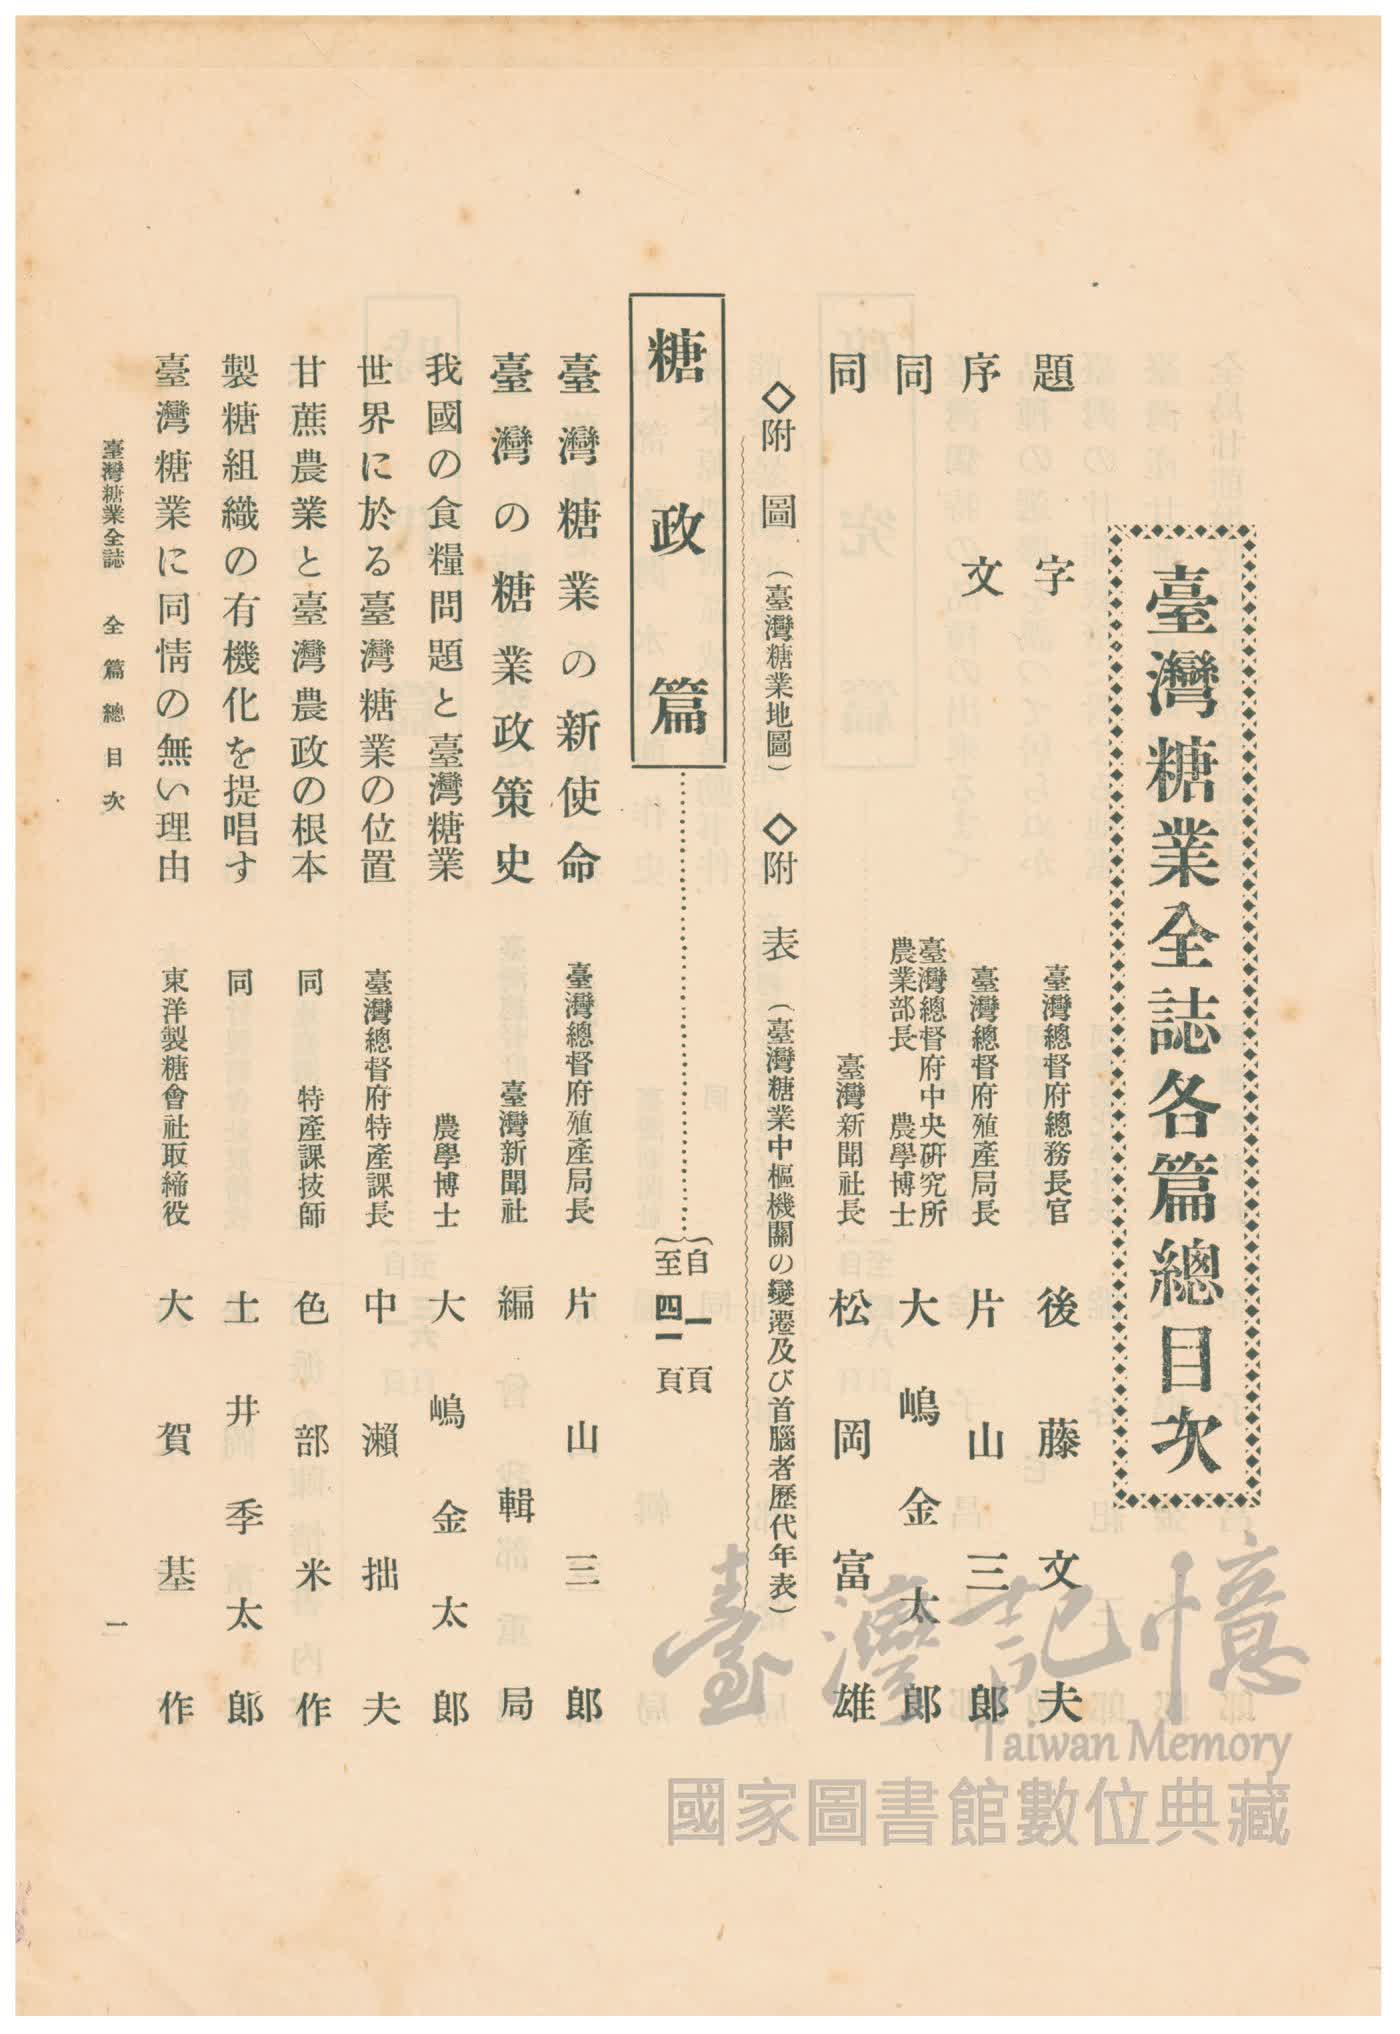 臺灣糖業全誌各篇總目次
題字 臺灣總督府總務長官 後藤文夫
序文 臺灣總督府殖產局長 片山三郎
同 臺灣總督府中央硏究所農業部長 農學博士 大嶋金太郎
同 臺灣新聞社長 松岡富雄
◇附圖（臺灣糖業地圖） ◇附表（臺灣糖業中樞機關の變遷及び首腦者歷代年表）
糖政篇 自一頁至四一頁
臺灣糖業の新使命 臺灣總督府殖產局長 片山三郎
臺灣の糖業政策史 臺灣新聞社 編輯局
我國の食糧問題と臺灣糖業 農學博士 大嶋金太郎
世界に於る臺灣糖業の位置 臺灣總督府特產課長 中瀨拙夫
甘蔗農業と臺灣農政の根本 同 特產課技師 色部米作
製糖組織の有機化を提唱す 同 土井季太郎
臺灣糖業に同情の無い理由 東洋製糖會社取締役 大賀基作
臺灣糖業全誌 全篇總目次 一
臺灣記憶
Taiwan Memory
國家圖書館數位典藏